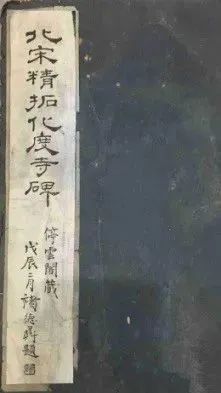 北宋精拓化度寺碑
停雲閣藏
戊辰二月褚德彝題